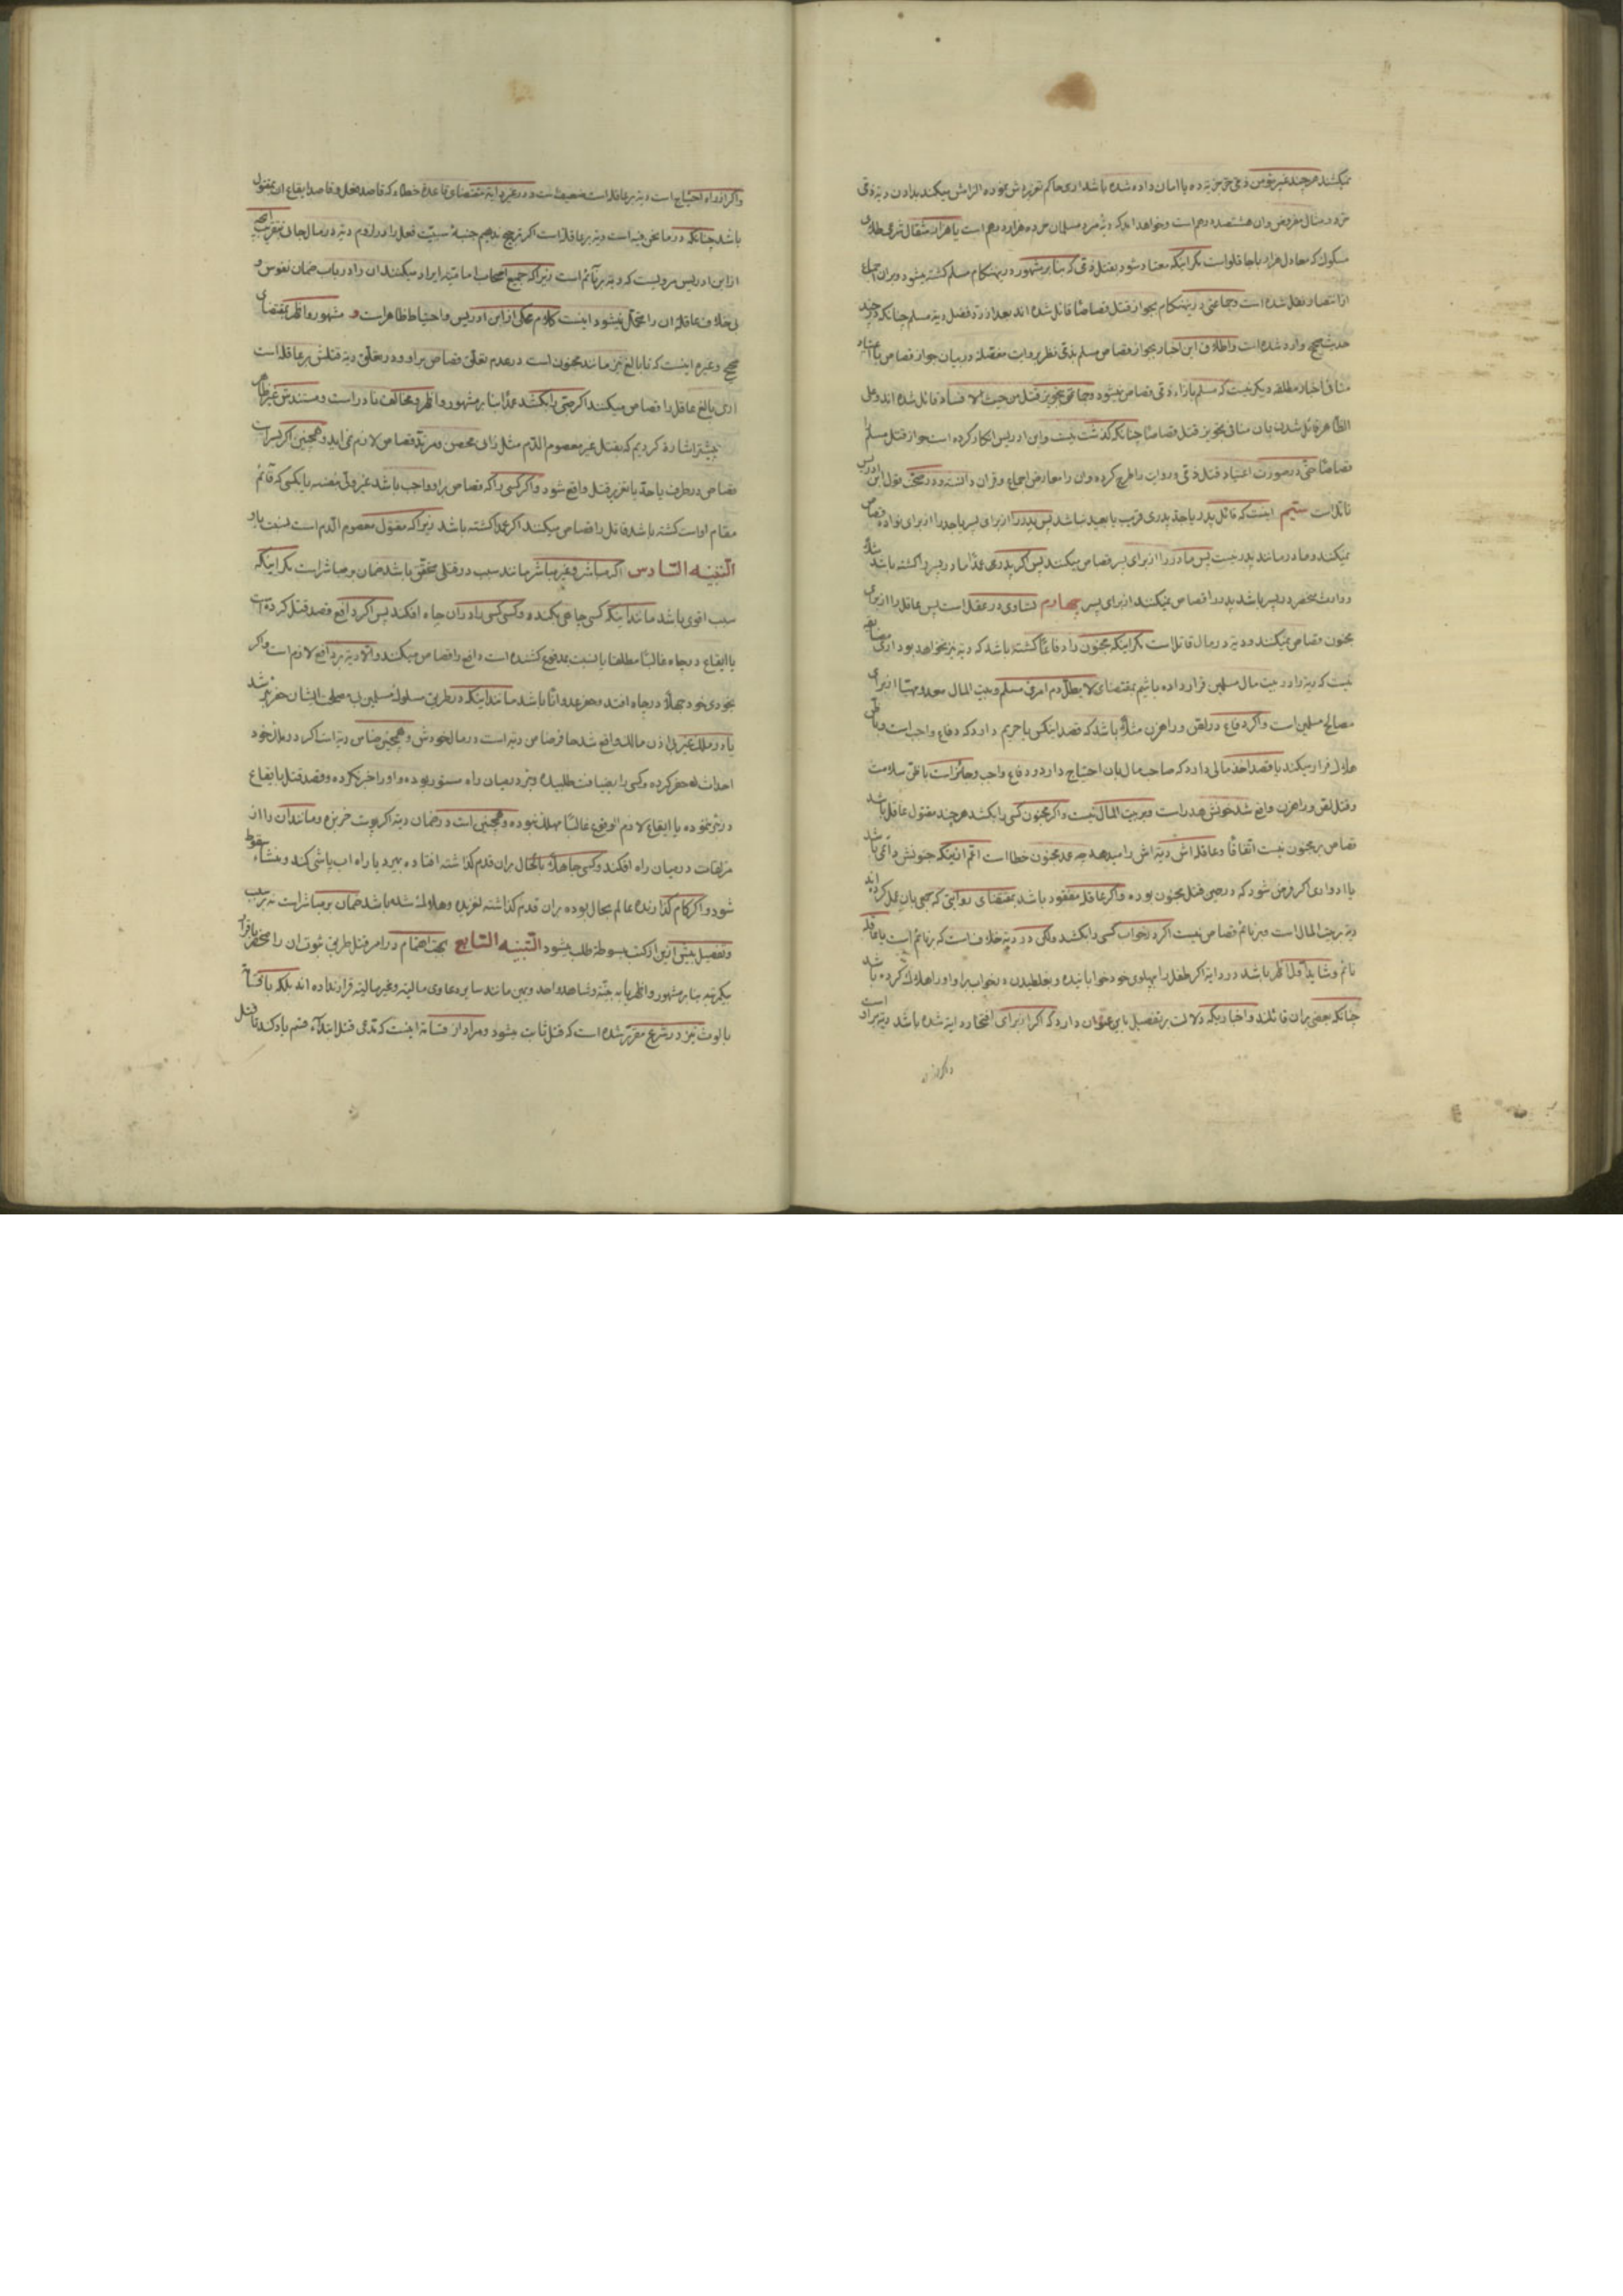 نمیکشند هرچند غیر مؤمن و غیر حر بوده یا امان داده شده باشد اری حاکم تعزیرش نموده الزامش میکند بدادن دیه ذمی
که معادل هزار باجاقلو است مکر اینکه معتاد شود بقتل ذمی که بنا بر مشهور در ینهنکام مسلم کشته میشود و بران اجماع
از انتصار نقل شده است و جماعتی در ینهنکام بجواز قتل قصاصا قائل شده اند بعد از رد فضل دیه مسلم چنانکه در چند
حدیث صحیح وارد شده است و اطلاق این اخبار بجواز قصاص مسلم بذمی نظر بروایت مفصله در بیان جواز قصاص با اعتیاد
منافی اخبار مطلقه دیکر نیست که مسلم بازاء ذمی قصاص نمیشود و جماعتی بتجویز قتل من حیث الافساد قائل شده اند و علی
الظاهر قائل شدن بان منافی تجویز قتل قصاصا چنانکه کذشت نیست و ابن ادریس انکار کرده است جواز قتل مسلم را
قصاصا حتی در صورت اعتیاد قتل ذمی و روایت را طرح کرده و ان را معارض اجماع و قران دانسته و در مختلف بقول ابن ادریس
قائل است سیّم اینست که قاتل پدر یا جد پدری قریب یا بعید نباشد پس پدر را از برای پسر یا جد را از برای نواده قصاص
نمیکنند و مادر مانند پدر نیست پس مادر را از برای پسر قصاص میکنند پس اکر پدری عمدا مادر پسر را کشته باشد مثلا
و وارث منحصر در پسر باشد پدر را قصاص نمیکنند از برای پسر چهارم تساوی در عقل است پس عاقل را از برای
مجنون قصاص نمیکنند و دیه در مال قاتل است مکر اینکه مجنون را دفاعا کشته باشد که دیه نیز نخواهد بود اری مضایقه
نیست که دیه را در بیت مال مسلمین قرار داده باشیم بمقتضای لا یطل دم امرئ مسلم و بیت المال معد و مهیا از برای
مصالح مسلمین است و اکر دفاع در لص و راهزن مثلا باشد که قصد اینکس یا حریم دارد که دفاع واجب است و با ظن
هلاک فرار میکند یا قصد اخذ مالی دارد که صاحب مال بان احتیاج دارد و دفاع واجب و جائز است با ظن سلامت
و قتل لص و راهزن واقع شد خونش هدر است و بر بیت المال نیست و اکر مجنون کسی را بکشد هرچند مقتول عاقل باشد
قصاص بر مجنون نیست اتفاقا و عاقله اش دیه اش را میدهد چه عمد مجنون خطا است اعم از اینکه جنونش دائمی باشد
یا ادواری اکر فرض شود که در حین قتل مجنون بوده و اکر عاقله مفقود باشد بمقتضای روایتی که جمعی بان عمل کرده اند
دیه بر بیت المال است و بر نائم قصاص نیست اکر در خواب کسی را بکشد ولکن در دیه خلاف است که بر نائم است یا عاقله
نائم و شاید اول اظهر باشد در دایه اکر طفل را بپهلوی خود خوابانیده و بغلطیدن در خواب بر او او را هلاک کرده باشد
چنانکه جمعی بران قائلند و اخباریکه دلالت بر تفصیل باین عنوان دارد که اکر از برای افتخار دایه شده باشد دیه بر او است
واکر از راه
واکر از راه احتیاج است دیه بر عاقله است ضعیف است و در غیر دایه مقتضای قاعده خطاء که قاصد فعل و قاصد ایقاع ان بمقتول
باشد چنانکه در ما نحن فیه است دیه بر عاقله است اکر ترجیح ندهیم جنبه سببیت فعل را در لزوم دیه در مال جانی
از ابن ادریس مرویست که دیه بر نائم است زیرا که جمیع اصحاب امامیه ایراد میکنند ان را در باب ضمان نفوس و
بی خلاف عاقله ان را متحمل نمیشود اینست کلام محکی از ابن ادریس و احتیاط ظاهر است و مشهور و اظهر بمقتضای
صحیح و غیره اینست که نابالغ نیز مانند مجنون است در عدم تعلق قصاص بر او و در تعلق دیه قتلش بر عاقله است
اری بالغ عاقل را قصاص میکنند اکر صبی را بکشد عمدا بنا بر مشهور و اظهر و مخالف نادر است و مستندش غیر ظاهر
پیشتر اشاره کردیم که بقتل غیر معصوم الدم مثل زانی محصن و مرتد قصاص لازم نمی اید و همچنین اکر بسرایت
قصاص در طرف یا حد یا تعزیر قتل واقع شود و اکر کسی را که قصاص بر او واجب باشد غیر ولی مقتضیه یا یکسی که قائم
مقام او است کشته باشد قاتل را قصاص میکنند اکر عمدا کشته باشد زیرا که مقتول معصوم الدم است نسبت باو
التنبیه السادس اکر مباشر و غیر مباشر مانند سبب در قتلی متحقق باشد ضمان بر مباشر است مکر اینکه
سبب اقوی باشد مانند اینکه کسی چاهی بکند و کسی کسی را در ان چاه افکند پس اکر دافع قصد قتل کرده است
یا ایقاع در چاه غالبا مطلقا یا نسبت بمدفوع کشنده است دافع را قصاص میکنند و الا دیه بر دافع لازم است و اکر
بخودی خود جهلا در چاه افتد و حفر عدوانا باشد مانند اینکه در طریق مسلوک مسلمین بی مصلحت ایشان حفر شد
یا در ملک غیر بی اذن مالک واقع شد حافر ضامن دیه است در مال خودش و همچنین ضامن دیه است اکر در ملک خود
احداث حفر کرده و کسی را بضیافت طلبیده و بئر در میان راه مستور بوده و او را خبر نکرده و قصد قتل بایقاع
در بئر ننموده یا ایقاع لازم الوقوع غالبا مهلک نبوده و همچنین است در ضمان دیه اکر پوست خربزه و مانند ان را از
مزلقات در میان راه افکند و کسی جاهلا بالحال بران قدم کذاشته افتاده بمیرد یا راه اب پاشی کند و منشاء سقوط
شود و اکر کام کذارنده عالم بحال بوده بران قدم کذاشته لغزیده و هلاک شده باشد ضمان بر مباشر است نه بر سبب
و تفصیل بیش از این از کتب مبسوطه طلب میشود التنبیه السابع بجهت اهتمام در امر قتل طریق ثبوت ان را منحصر باقرار
یکمرتبه بنا بر مشهور و اظهر یا به بینه و شاهد واحد و یمین مانند سایر دعاوی مالیه و غیر مالیه قرار نداده اند بلکه با قسامه
با لوث نیز در شرع مقرر شده است که قتل ثابت میشود و مراد از قسامه اینست که مدعی قتل ابتداء قسم یاد کند